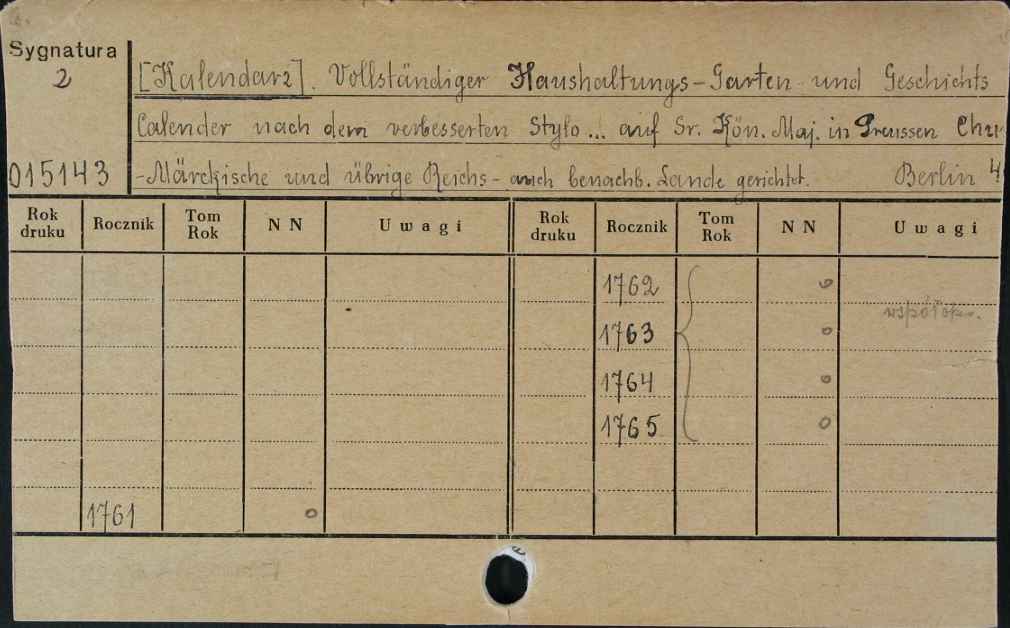 Sygnatura
2
015143
[Kalendarz]. Vollständiger Haushaltungs-Garten und Geschichts
Calender nach dem verbesserten Stylo... auf Sr. Kön. Maj. in Preussen Chur
-Märckische und übrige Reichs- auch benachb. Lande gerichtet. Berlin 4
Rok druku Rocznik Tom Rok N N Uwagi Rok druku Rocznik Tom Rok N N Uwagi
1762 0
współopr.
1763 0
1764 0
1765 0
1761 0